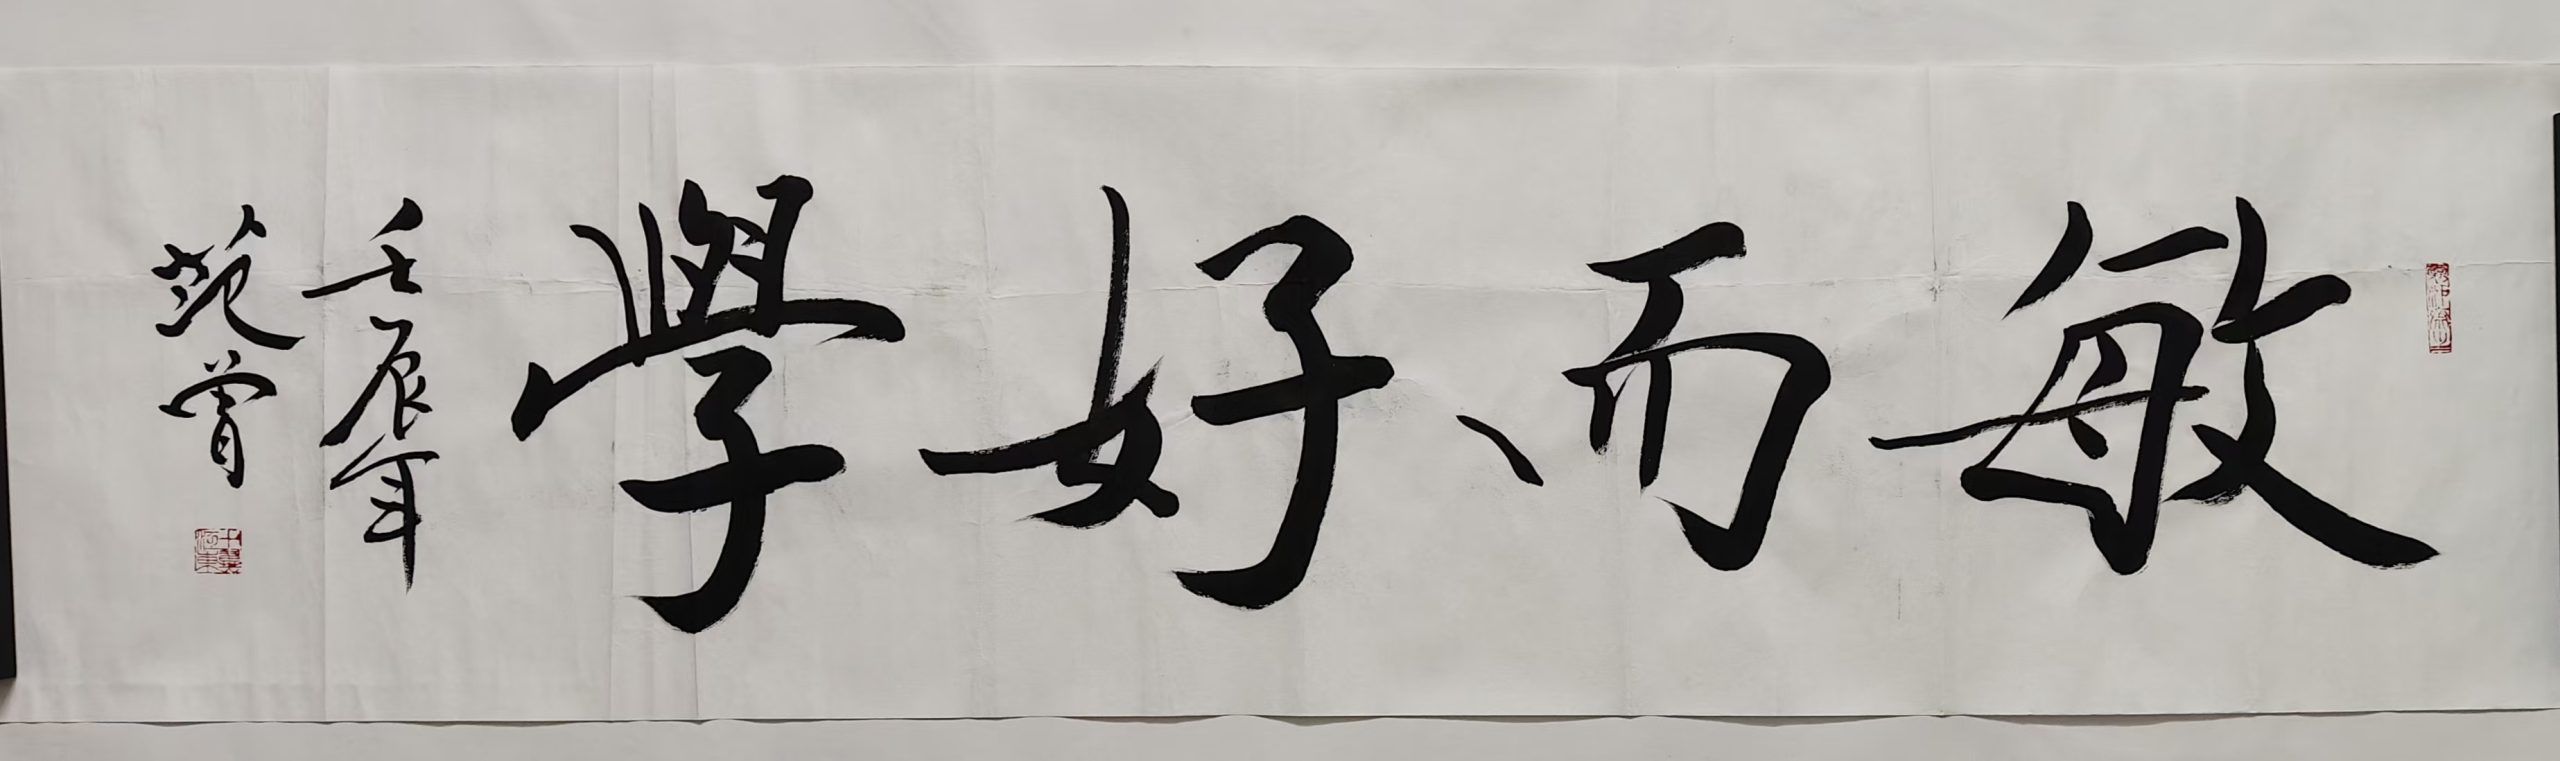 敏而好學
壬辰年
范曾